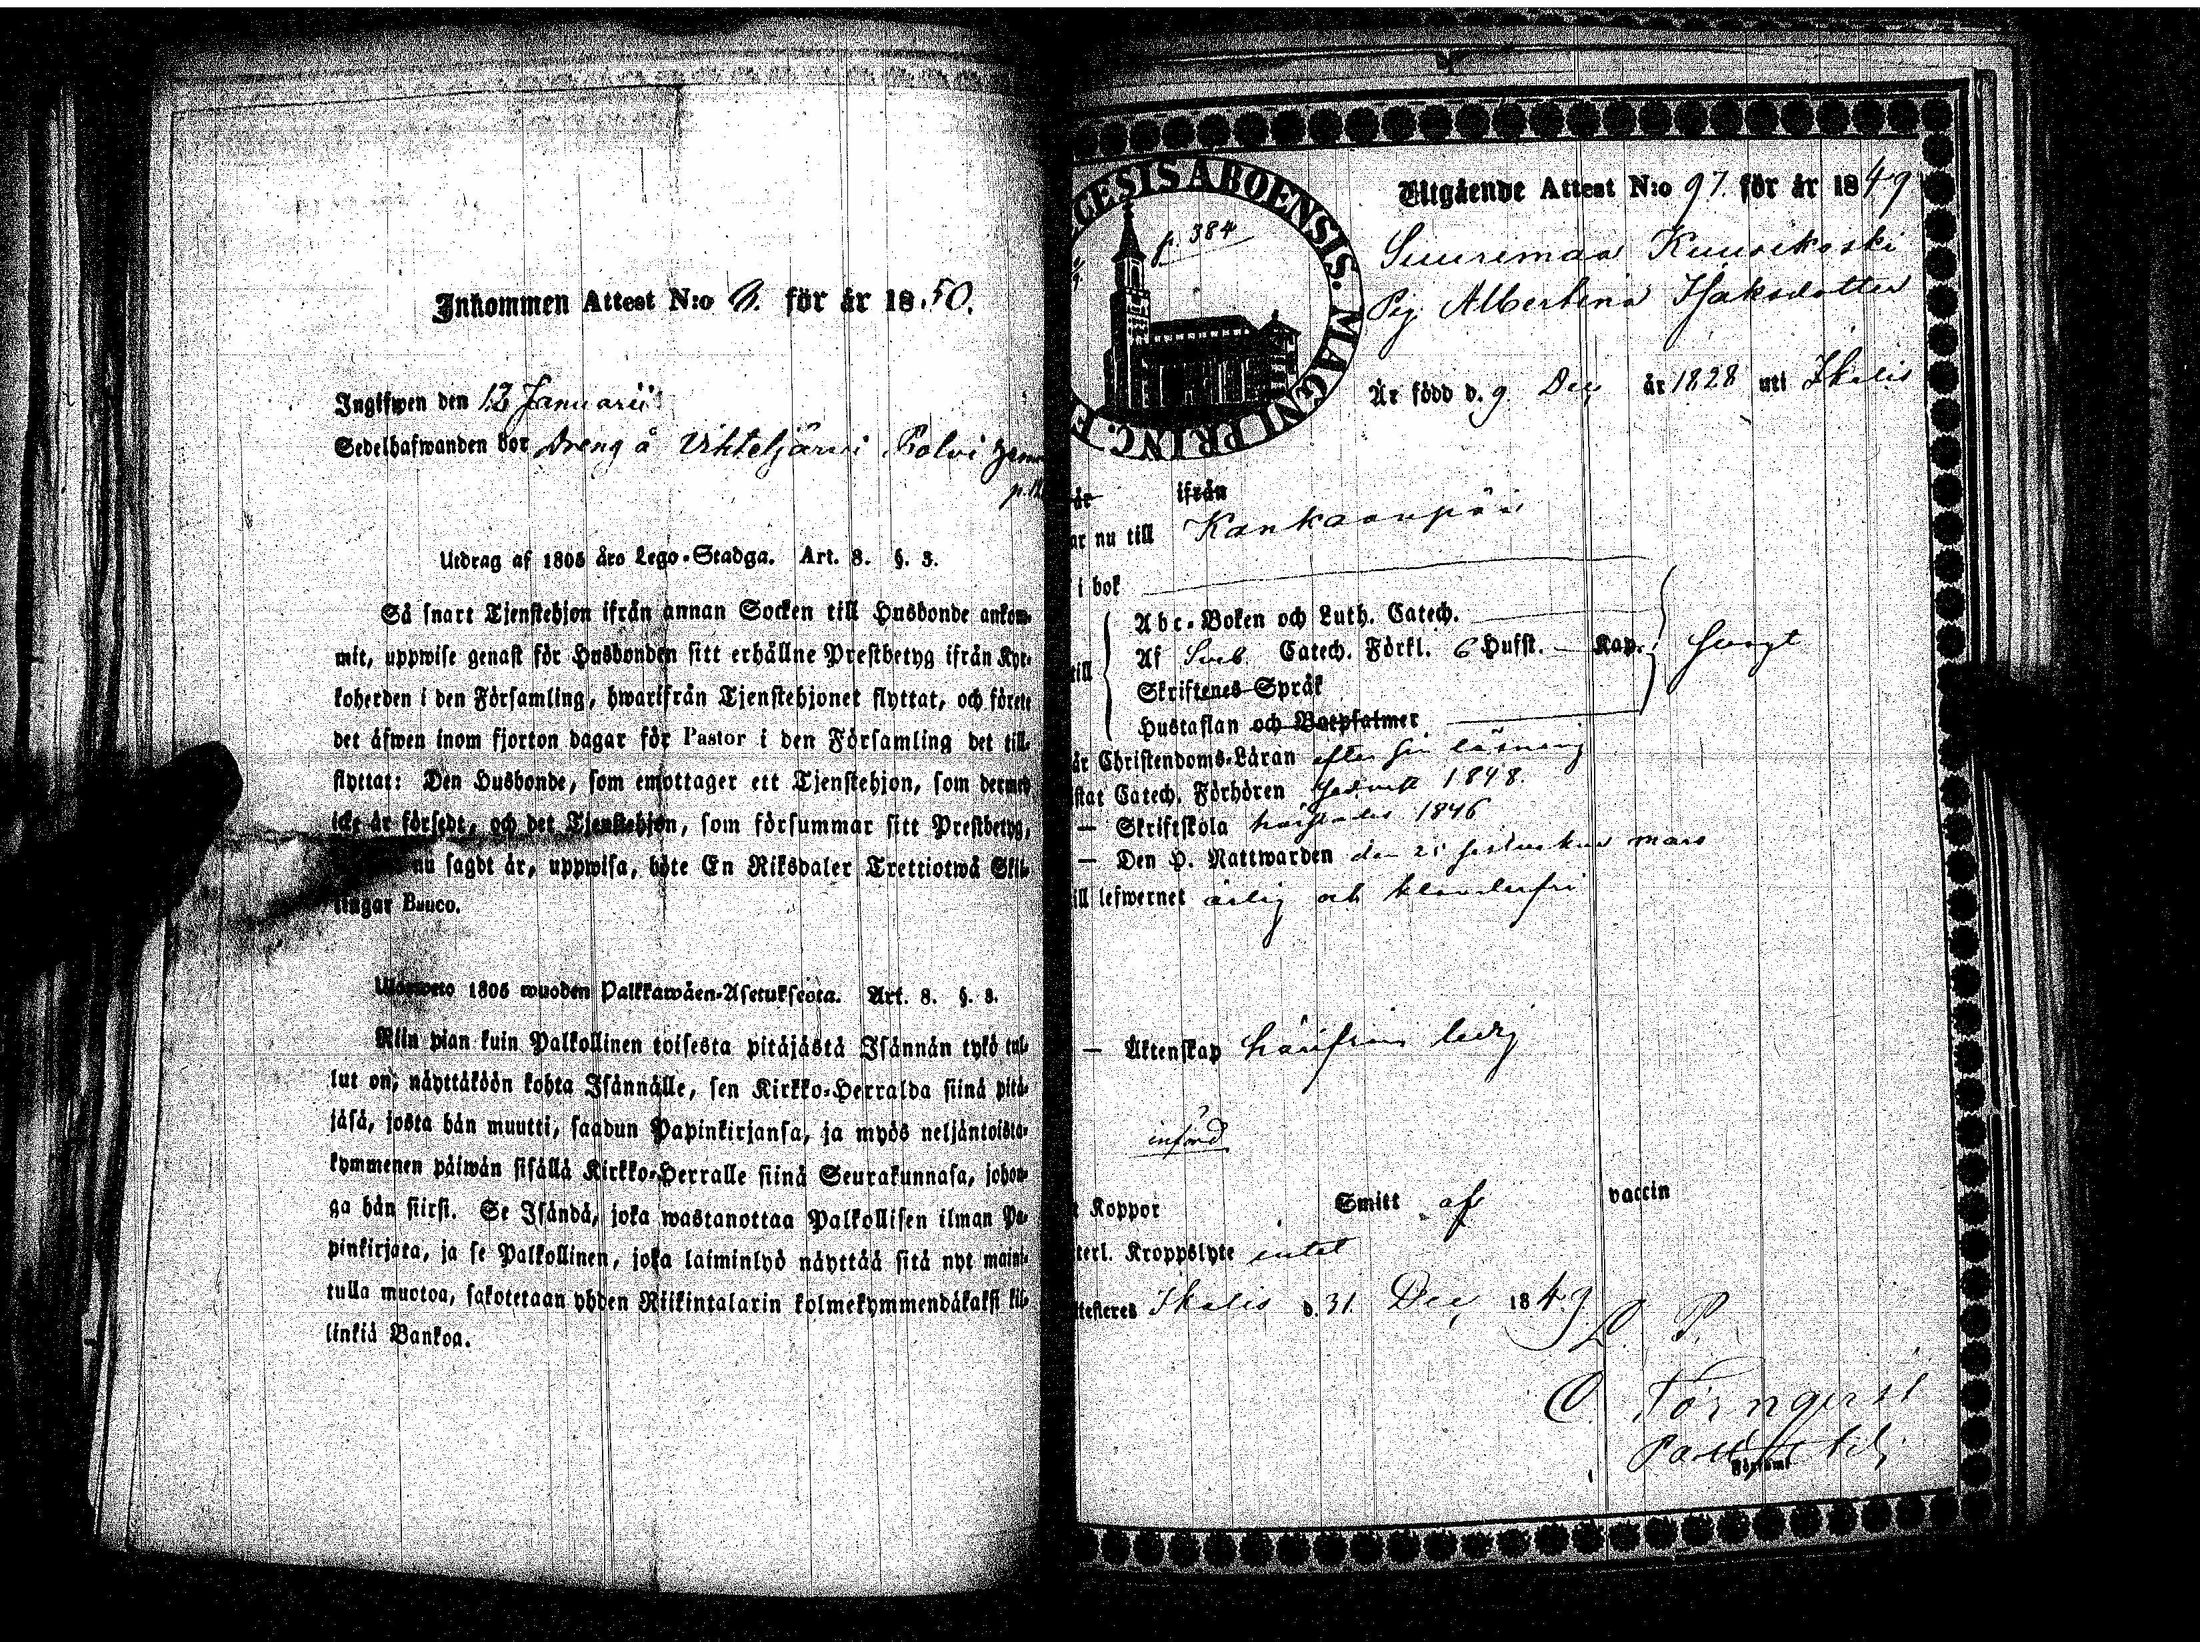 Inkommen Attest N:o 2. för år 1850.
Ingifwen den 12 Januarii
Sedelhafwanden bor Dreng å Vihteljärvi Polvi
Utdrag af 1805 års Lego-Stadga. Art. 8. §. 3.
Så snart Tjenstehjon ifrån annan Socken till Husbonde ankom-
mit, uppwise genast för Husbonden sitt erhållne Prestbetyg ifrån Kyr-
koherden i den Församling, hwarifrån Tjenstehjonet flyttat, och förete
det äfwen inom fjorton dagar för Pastor i den Församling det till-
flyttat: Den Husbonde, som emottager ett Tjenstehjon, som dermed
icke är försedt, och det Tjenstehjon, som försummar sitt Prestbetyg,
nu sagdt är, uppwisa, böte En Riksdaler Trettiotwå Skil-
lingar Banco.
Ulosweto 1805 wuoden Palkkawäen-Asetuksesta. Art. 8. §. 3.
Niin pian kuin Palkollinen toisesta pitäjästä Isännän tykö tul-
lut on, näyttäköön kohta Isännälle, sen Kirkko-Herralda siinä pitä-
jäsä, josta hän muutti, saadun Papinkirjansa, ja myös neljäntoista-
kymmenen päiwän sisällä Kirkko-Herralle siinä Seurakunnasa, johon-
ga hän siirsi. Se Isändä, joka wastanottaa Palkollisen ilman Pa-
pinkirjata, ja se Palkollinen, joka laiminlyö näyttää sitä nyt maini-
tulla muotoa, sakotetaan yhden Riikintalarin kolmekymmendäkaksi kil-
linkiä Bankoa.
CESIS ABOENSIS. MAGNI PRINC. F
p. 384
Utgående Attest N:o 97. för år 1849
Suurimaa Kuusikoski
Pig. Albertina Isaksdotter
Är född d. 9 Dec. år 1828 uti Ikalis
är ifrån
ar nu till Kankaanpää
i bok
till
Abc-Boken och Luth. Catech.
Af Sveb. Catech. Förkl. 6 Hufst. — Kap.
Skriftenes Språk
Hustaflan och Botpsalmer
svagt
år Christendoms-Läran efter sin läsning
stat Catech. Förhören sednast 1848.
— Skriftskola härstädes 1846
— Den H. Nattwarden den 25 sistvekne mars
till lefwernet ärlig och klanderfri
— Äktenskap härifrån ledig
införd
t Koppor Smitt af vaccin
terl. Kroppslyte intet
ttesteras Ikalis d. 31. Dec. 1849.
L. P.
C. Törngren